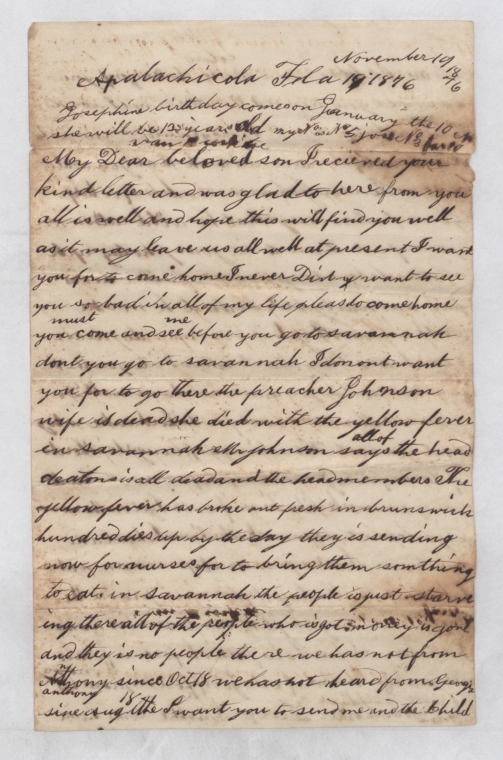 November 19
18/76
Apalachicola Fla 19 1876
Josephine birthday comes on January the 10
she will be 13 years old my No 5 Jose No 3
My Dear beloved son I recieved your
kind letter and was glad to here from you
all is well and hope this will find you well
as it may leave us all well at present I want
you for to come home I never Did want to see
you so bad in all of my life pleas do come home
must me
you come and see before you go to savannah
dont you go to savannah I donont want
you for to go there the preacher Johnson
wife is dead she died with the yellow fever
all of
in savannah Mr Johnson says the head
deatons is all dead and the head members The
yellow fever has broke out fresh in brunswick
hundred dies up by the day they is sending
now for nurses for to bring them somthing
to eat in savannah the people is just starve
ing there all of the people who is got money is gone
and they is no people there we has not from
Anthony since Oct 18 we has not heard from George
anthony 18
since aug the I want you to send me and the Child